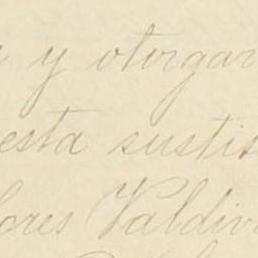 y otorgar
esta sustis
ores Valdiv